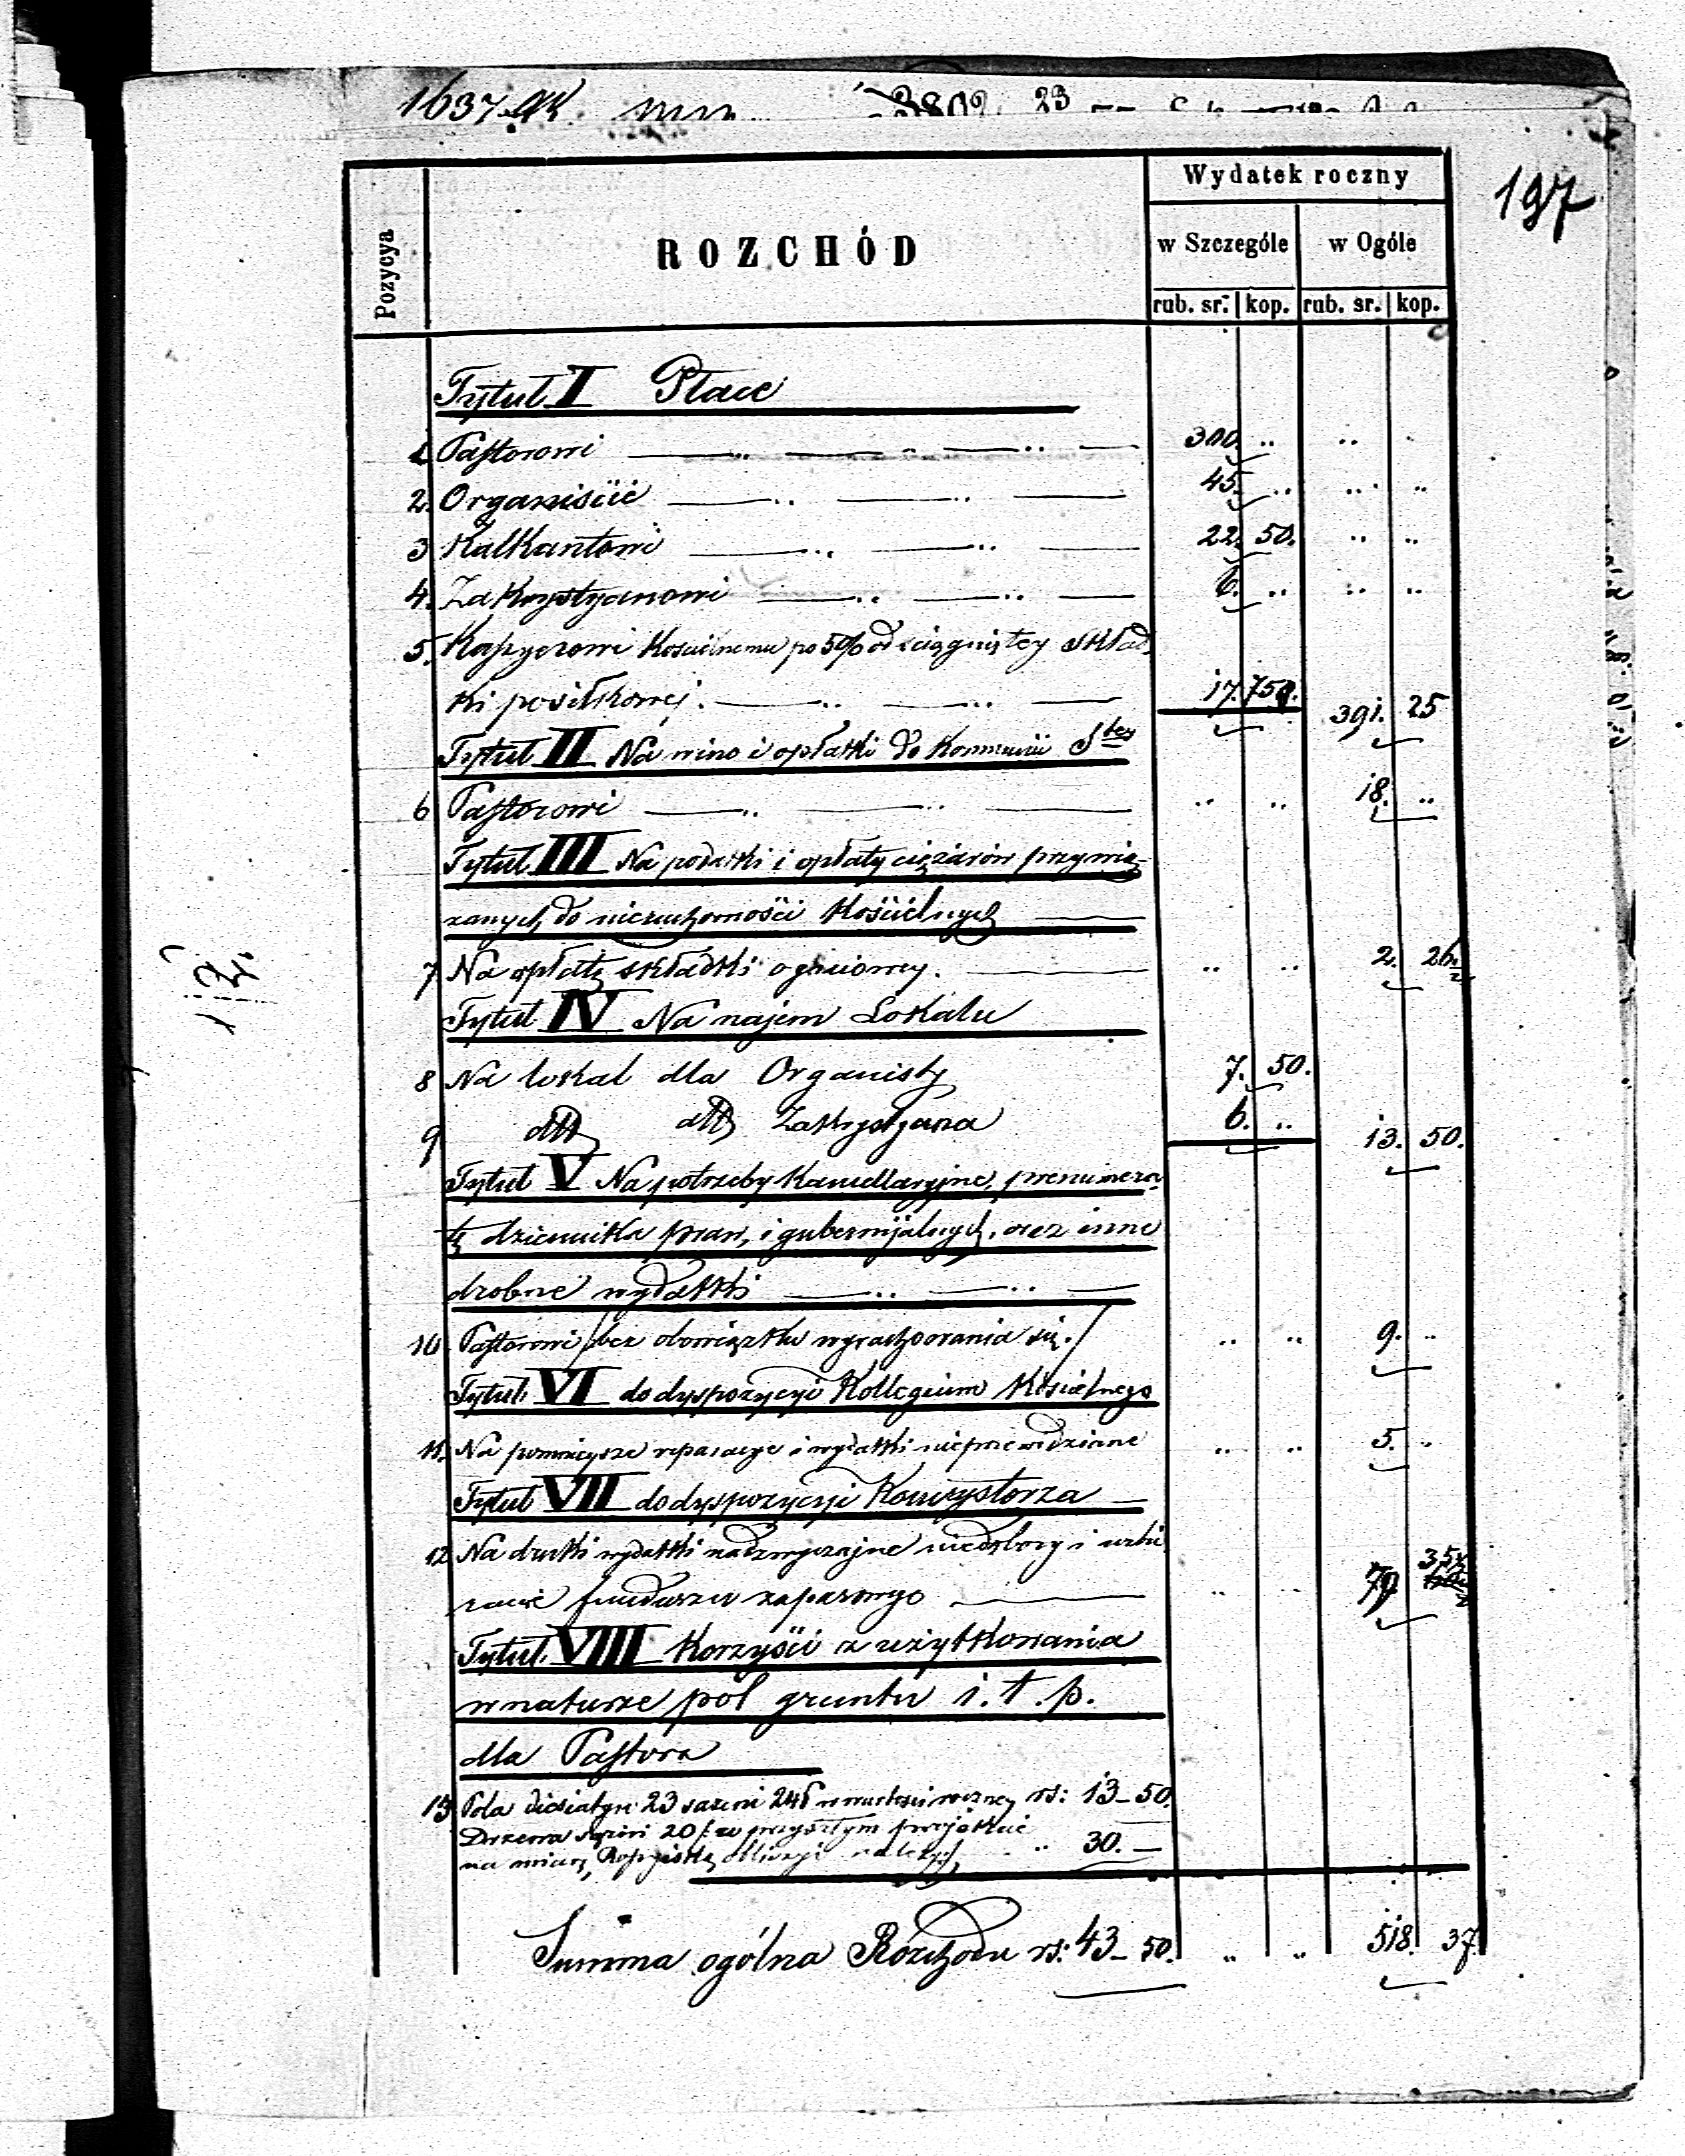 1637
3802 23
197
Wydatek roczny
Pozycya
ROZCHÓD
w Szczególe w Ogóle
rub. sr. kop. rub. sr. kop.
Tytuł I Płace
1 Pastorowi 300. .. .. ..
2. Organiście 45. .. .. ..
3 Kalkantowi 22. 50. .. ..
4. Zakrystyanowi 6. .. .. ..
5. Kassyerowi Kościelnemu po 5% od ściągniętey Skład-
ki posiłkowej. 17. 75. 391. 25
Tytuł II Na wino i opłatki do Kommunii Stey
6 Pastorowi .. .. 18. ..
Tytuł III Na podatki i opłaty ciężarów przywią-
zanych do nieruchomości Kościelnych
7 Na opłatę składki ogniowey. .. .. 2. 26
Tytuł IV Na najem Lokalu
8 Na lokal dla Organisty 7. 50.
9 dtto dtto Zakrystyana 6. .. 13. 50.
Tytuł V Na potrzeby Kancellaryjne, prenumera-
tę dziennika praw, i gubernijalnych, oraz inne
drobne wydatki
10 Pastorowi /bez obowiązku wyrachowania się./ .. .. 9. ..
Tytuł VI do dyspozycyi Kollegium Kościelnego
11. Na pomniejsze reparacye i wydatki nieprzewidziane .. .. 5. ..
Tytuł VII do dyspozycyi Konsystorza
12 Na druki wydatki nadzwyczajne niedobory i uzbi
ranie funduszu zapasowego .. .. 79 35
Tytuł VIII Korzyści z użytkowania
w naturze pól gruntu i. t. p.
dla Pastora
13 Pola dziesiatyn 23 sażeni 248 w wartości roczney rs: 13-50.
Drzewa sążni 20 w przyszłym projekcie
na miarę Rossyjską .. 30. —
Summa ogólna Rozchodu rs: 43- 50. .. .. 518. 37.